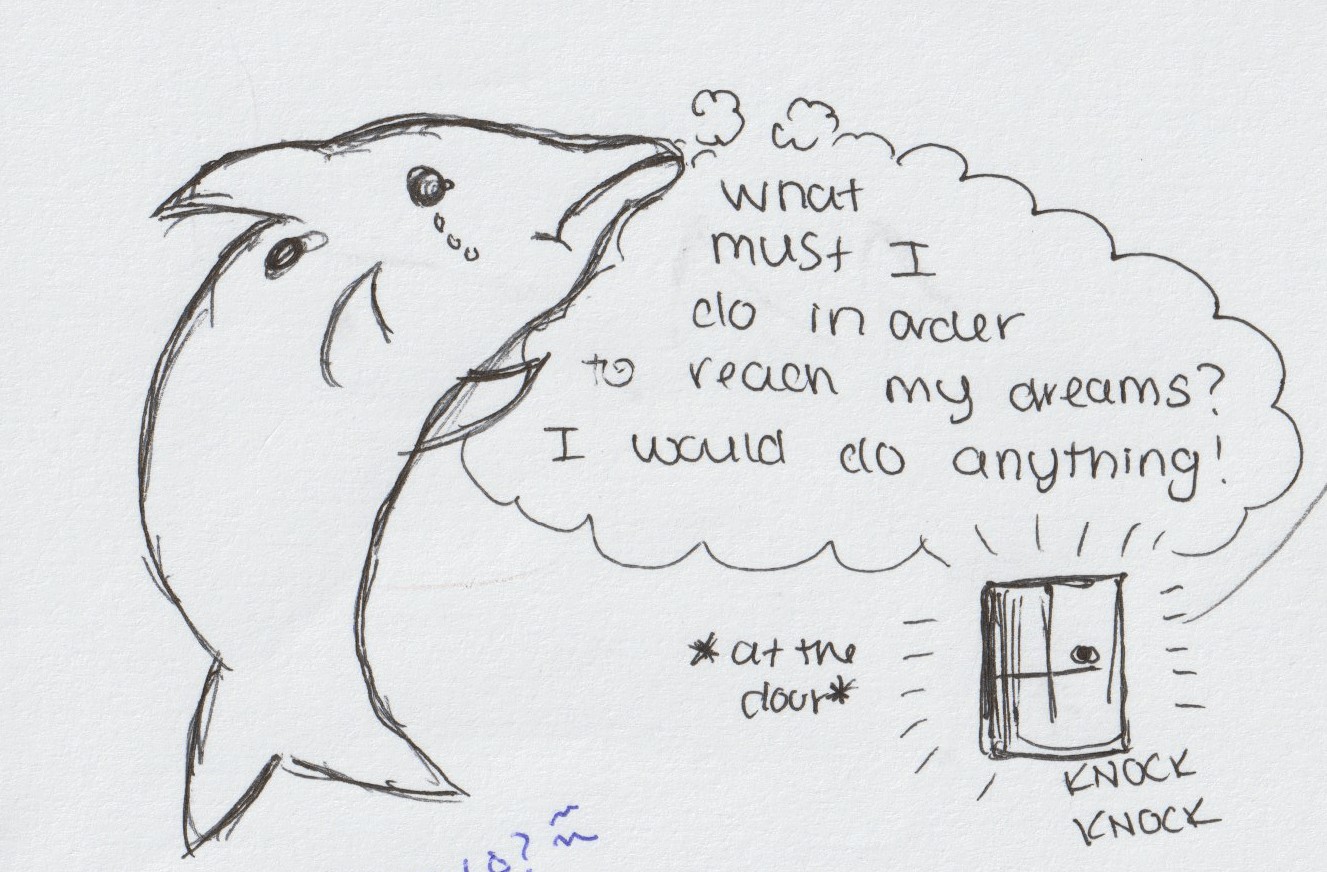 what
must I
do in order
to reach my dreams?
I would do anything!
*at the
door*
KNOCK
KNOCK